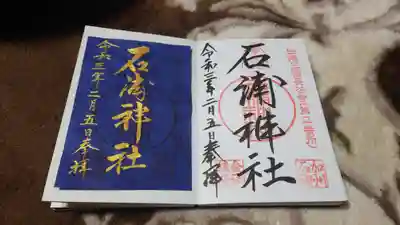 石浦神社
令和三年二月五日奉拝
石浦神社
令和三年二月五日奉拝